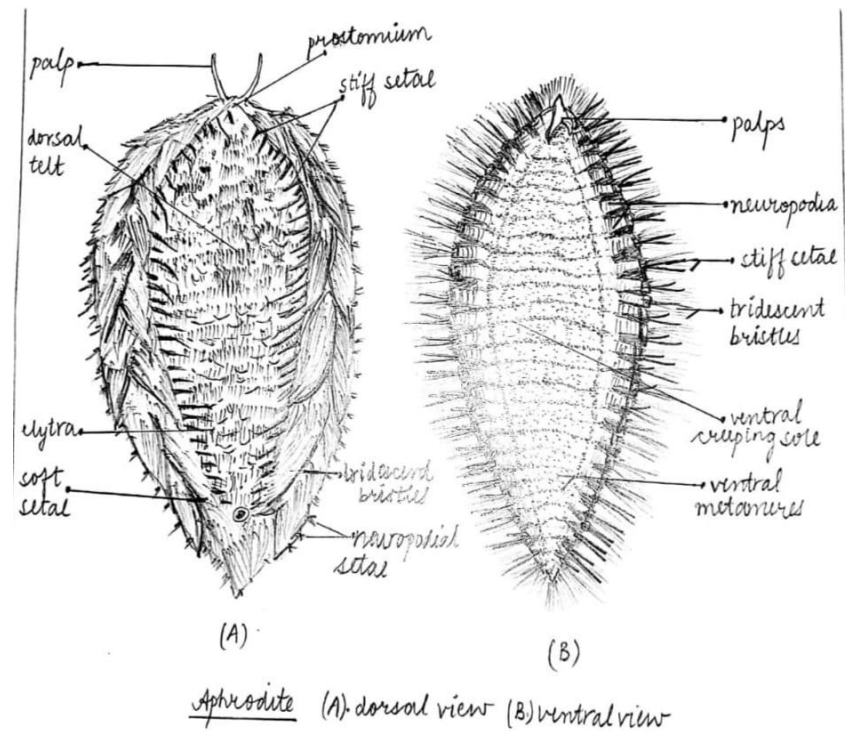 prostomium
palp
stiff setae
dorsal
telt
elytra
soft
setae
tridescent
bristles
neuropodial
setae
palps
neuropodia
stiff setae
tridescent
bristles
ventral
creeping sole
ventral
metameres
(A)
(B)
Aphrodite (A). dorsal view (B.) ventral view